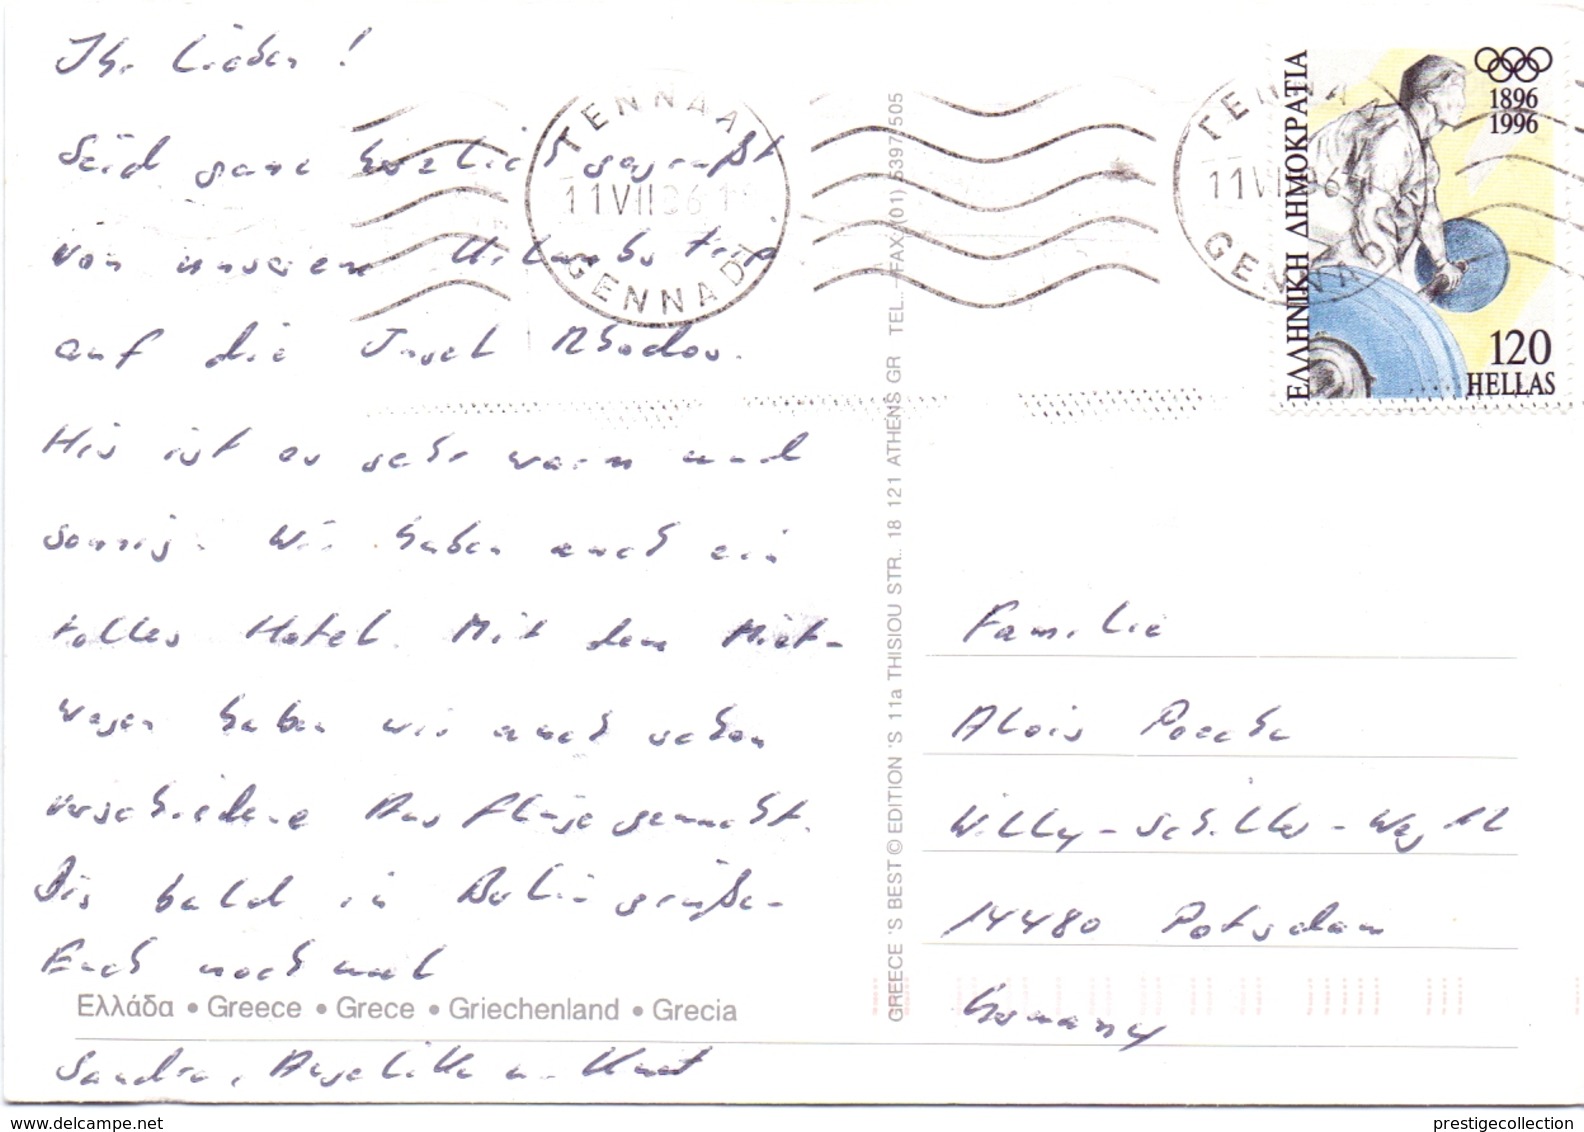 Ihr Lieben!
Seid ganz herzlich gegrüßt
von unserem Urlaubstrip
auf die Insel Rhodos.
Hier ist es sehr warm und
sonnig. Wir haben auch ein
tolles Hotel. Mit dem Miet-
wagen haben wir auch schon
verschiedene Ausflüge gemacht.
Bis bald in Berlin grüßen
Euch noch mal
Ελλάδα • Greece • Grece • Griechenland • Grecia
Sandra, Angelika u. Knut
ΓΕΝΝΑΔΙ
11 VII 96
GENNADI
GREECE 'S BEST © EDITION 'S 11a THISIOU STR.. 18 121 ATHENS GR TEL..-FAX (01) 5397505
ΓΕΝΝΑ
11 VII 96
GENNADI
ΕΛΛΗΝΙΚΗ ΔΗΜΟΚΡΑΤΙΑ
1896
1996
120
HELLAS
Familie
Alois
Willy-Schiller-Weg 12
14480 Potsdam
Germany
www.delcampe.net
prestigecollection